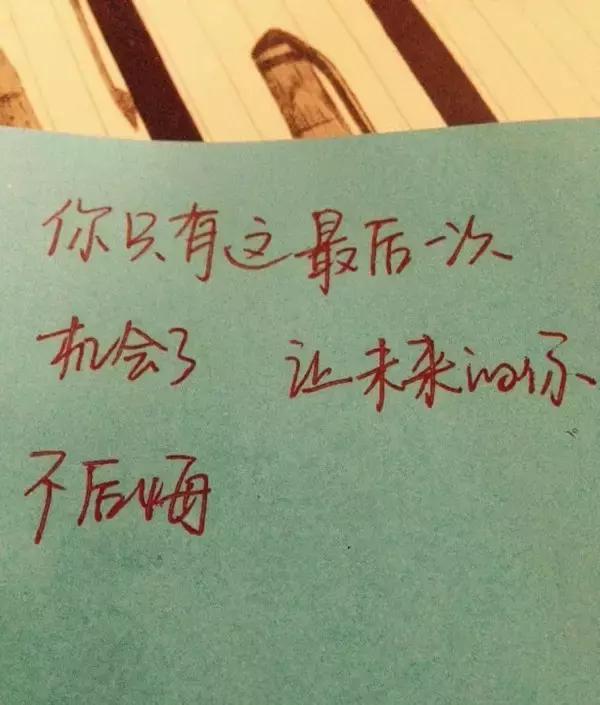 你只有这最后一次
机会了 让未来的你
不后悔